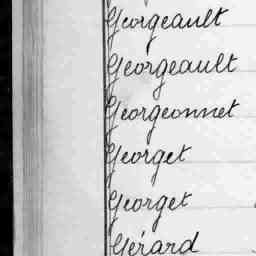 Georgeault
Georgeault
Georgeonnet
Georget
Georget
Gérard